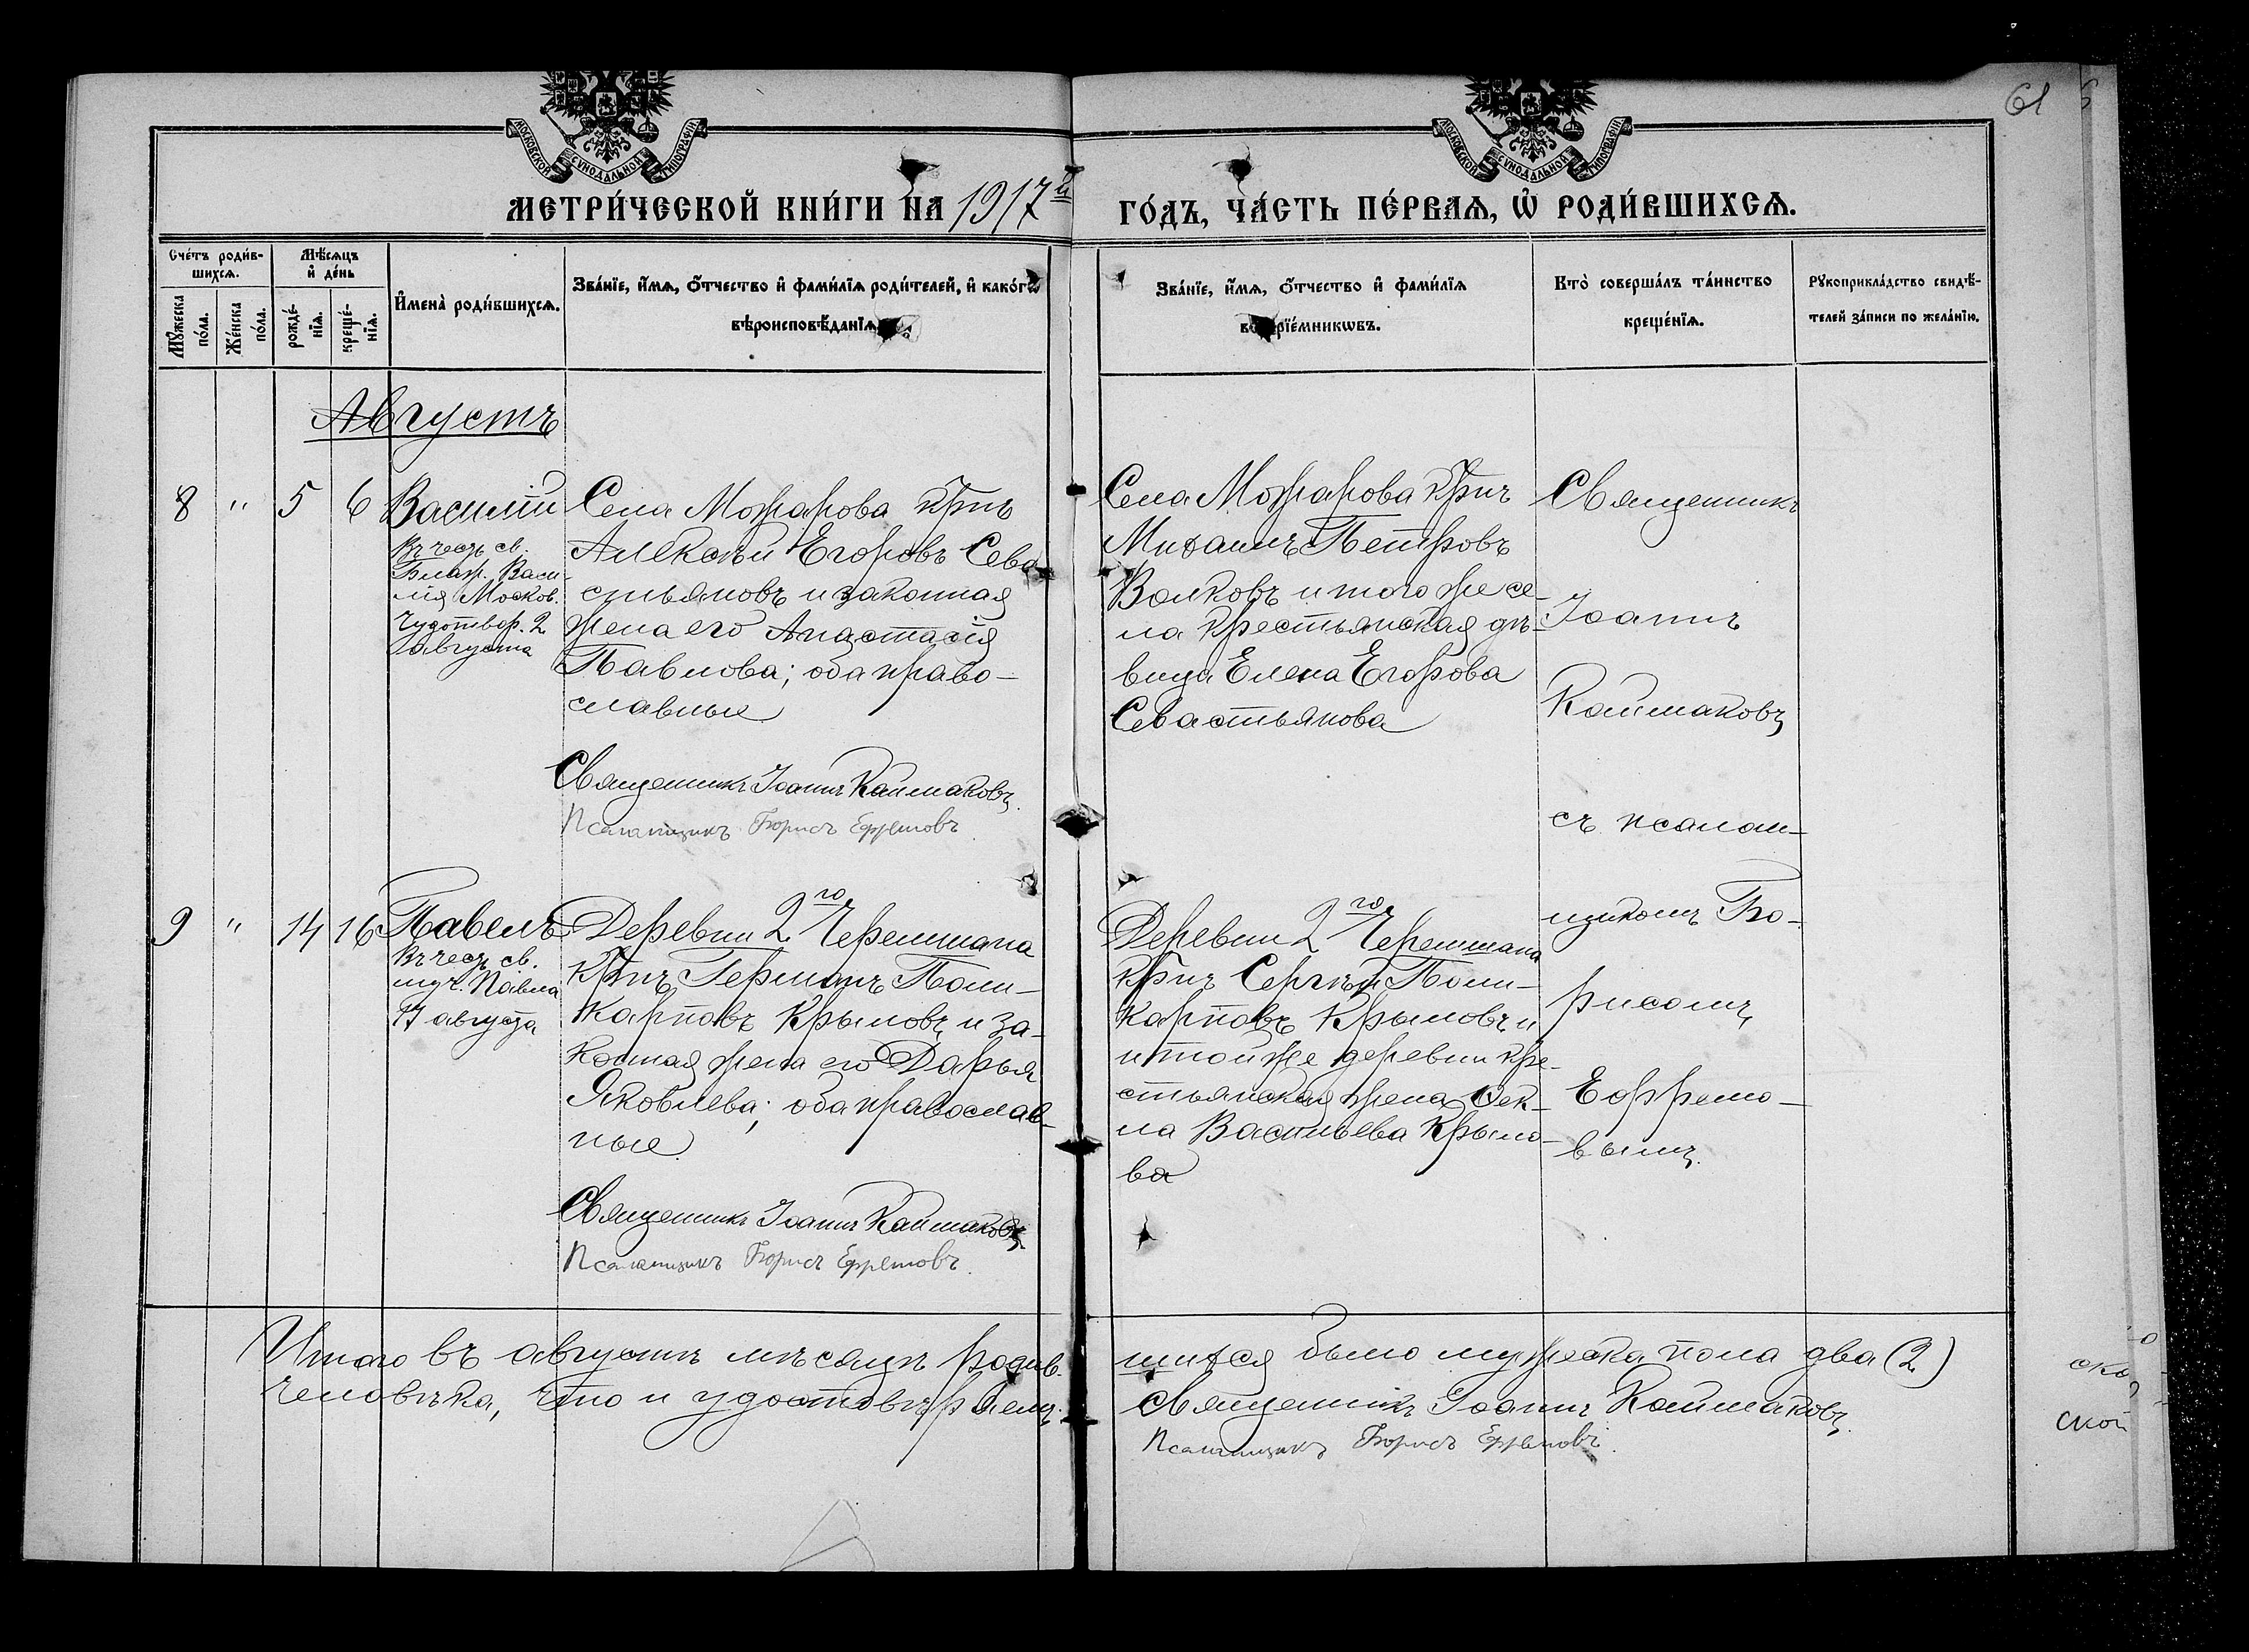 61
МОСКОВСКОЙ СѴНОДАЛЬНОЙ ТИПОГРАФІИ
МОСКОВСКОЙ СѴНОДАЛЬНОЙ ТИПОГРАФІИ
МЕТРИ́ЧЕСКОЙ КНИ́ГИ НА 1917й
ГО́ДЪ, ЧА́СТЬ ПЕ́РВАѦ, Ѽ РОДИ́ВШИХСѦ.
Сче́тъ роди́в-
шихсѧ.
Мѣ́сѧцъ
и҆ де́нь
Мꙋ́жеска
по́ла.
Же́нска
по́ла.
рожде́-
нїѧ.
креще́-
нїѧ.
И҆мена̀ роди́вшихсѧ.
Зва́нїе, и҆́мѧ, ѻ҆́тчество и҆ фами́лїѧ роди́телей, и҆ како́гѡ
вѣроисповѣ́данїѧ
Зва́нїе, и҆́мѧ, ѻ҆́тчество и҆ фами́лїѧ
воспрїе́мникѡвъ.
Кто̀ соверша́лъ та́инство
креще́нїѧ.
Рꙋкоприкла́дство свидѣ́-
телей за́писи по жела́нїю.
Августъ
8 " 5 6 Василій
Въ честь св.
Благ. Васи-
лія Москов.
Чудотвор. 2
августа
Села Можарова кр-нъ
Алексѣй Егоровъ Сева-
стьяновъ и законная
жена его Анастасія
Павлова; оба право-
славные
Священникъ Іоаннъ Каймаковъ.
Псаломщикъ Борисъ Ефремовъ.
Села Можарова кр-нъ
Михаилъ Петровъ
Волковъ и того же се-
ла крестьянская дѣ-
вица Елена Егорова
Севастьянова
Священникъ
Іоаннъ
Каймаковъ
съ псалом-
щикомъ Бо-
рисомъ
Ефремо-
вымъ.
9 " 14 16 Павелъ
Въ честь св.
муч. Павла
17 августа
Деревни 2го Черемшана
кр-нъ Германъ Поли-
карповъ Крыловъ и за-
конная жена его Дарья
Яковлева; оба православ-
ные.
Священникъ Іоаннъ Каймаковъ
Псаломщикъ Борисъ Ефремовъ.
Деревни 2го Черемшана
кр-нъ Сергѣй Поли-
карповъ Крыловъ и
и той же деревни кре-
стьянская жена Ѳек-
ла Васильева Крыло-
ва
Итого въ августѣ мѣсяцѣ родив-
шихся было мужеска пола два (2)
человѣка, что и удостовѣряемъ.
Священникъ Іоаннъ Каймаковъ.
Псаломщикъ Борисъ Ефремовъ.
ской